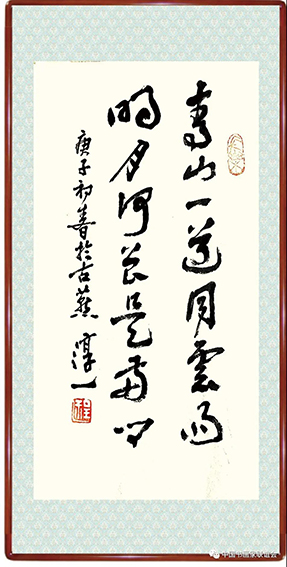 青山一道同雲雨
明月何曾是兩鄉
庚子初春於古燕 淳一
中国书画家联谊会